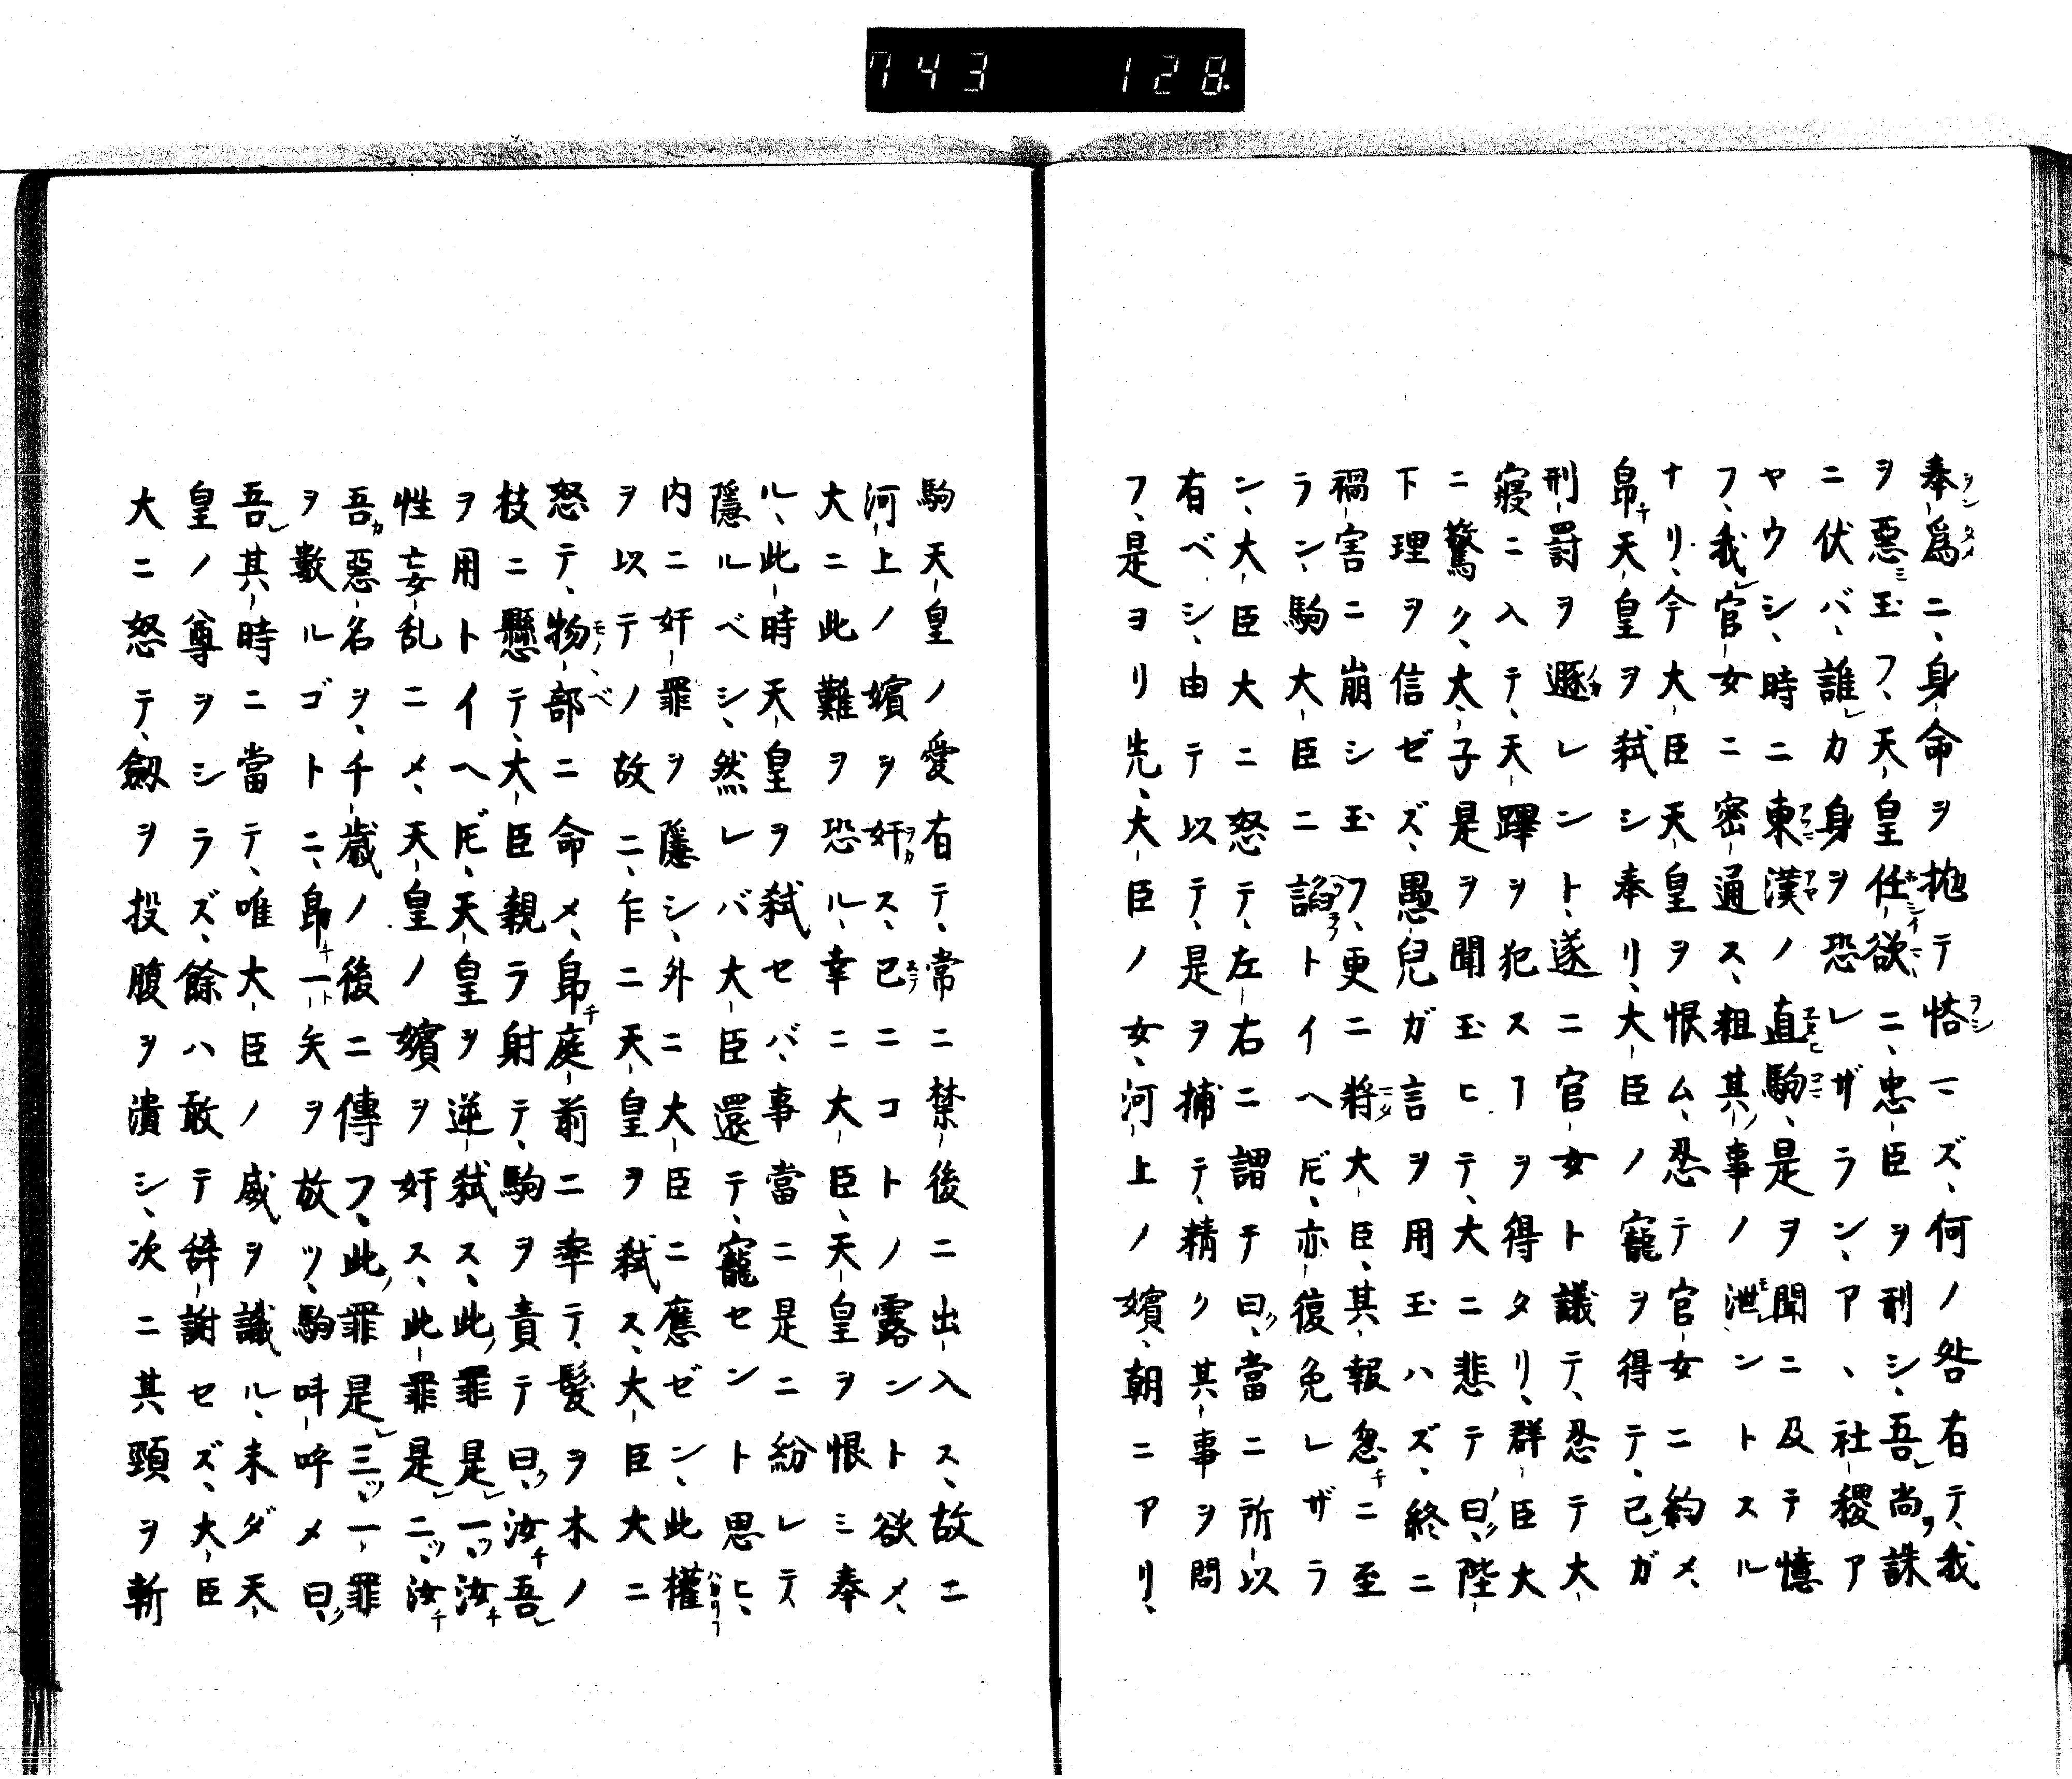 743 128
奉爲ニ、身命ヲ抛テ悋ミズ、何ノ咎有テ、我
ヲ惡玉フ、天皇任欲ニ、忠臣ヲ刑シ、吾尚誅
ニ伏バ、誰カ身ヲ恐レザラン、アヽ社稷ア
ヤウシ、時ニ東漢ノ直駒、是ヲ聞ニ及テ憶
フ、我官女ニ密通ス、粗其事ノ泄ントスル
ナリ、今大臣天皇ヲ恨ム、忍テ官女ニ約メ、
帠天皇ヲ弑シ奉リ、大臣ノ寵ヲ得テ、已ガ
刑罰ヲ遯レント、遂ニ官女ト議テ、忍テ大
寢ニ入テ、天蹕ヲ犯スヿヲ得タリ、群臣大
ニ驚ク、太子是ヲ聞玉ヒテ、大ニ悲テ曰、陛
下理ヲ信ゼズ、愚兒ガ言ヲ用玉ハズ、終ニ
禍害ニ崩シ玉フ、更ニ將大臣、其報忽ニ至
ラン、駒大臣ニ諂トイヘ𪜈、亦復免レザラ
ン、大臣大ニ怒テ、左右ニ謂テ曰、當ニ所以
有ベシ、由テ以テ、是ヲ捕テ、精ク其事ヲ問
フ、是ヨリ先、大臣ノ女、河上ノ嬪、朝ニアリ、
駒天皇ノ愛有テ、常ニ禁後ニ出入ス、故ニ
河上ノ嬪ヲ奸ス、已ニコトノ露ント欲メ、
大ニ此難ヲ恐ル、幸ニ大臣、天皇ヲ恨ミ奉
ル、此時天皇ヲ弑セバ、事當ニ是ニ紛レテ
隱ルベシ、然レバ大臣還テ、寵セント思ヒ、
内ニ奸罪ヲ隱シ、外ニ大臣ニ應ゼン、此權
ヲ以テノ故ニ、乍ニ天皇ヲ弑ス、大臣大ニ
怒テ、物部ニ命メ、帠庭前ニ牽テ、髪ヲ木ノ
枝ニ懸テ、大臣親ラ射テ、駒ヲ責テ曰、汝吾
ヲ用トイヘ𪜈、天皇ヲ逆弑ス、此罪是一、汝
性妄乱ニメ、天皇ノ嬪ヲ奸ス、此罪是二、汝
吾惡名ヲ、千歳ノ後ニ傳フ、此罪是三、一罪
ヲ數ルゴトニ、帠一矢ヲ放ツ、駒呌呼メ曰、
吾其時ニ當テ、唯大臣ノ威ヲ識ル、未ダ天
皇ノ尊ヲシラズ、餘ハ敢テ辞謝セズ、大臣
大ニ怒テ、劔ヲ投腹ヲ潰シ、次ニ其頸ヲ斬